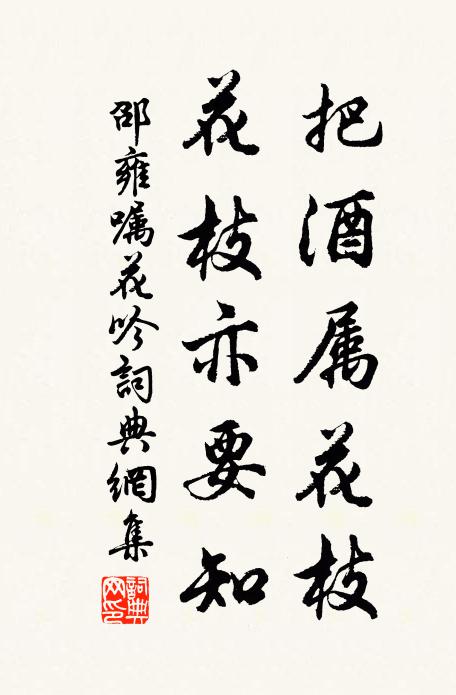 把酒属花枝
花枝亦要知
邵雍嘱花吟詞典網集
詞典网印